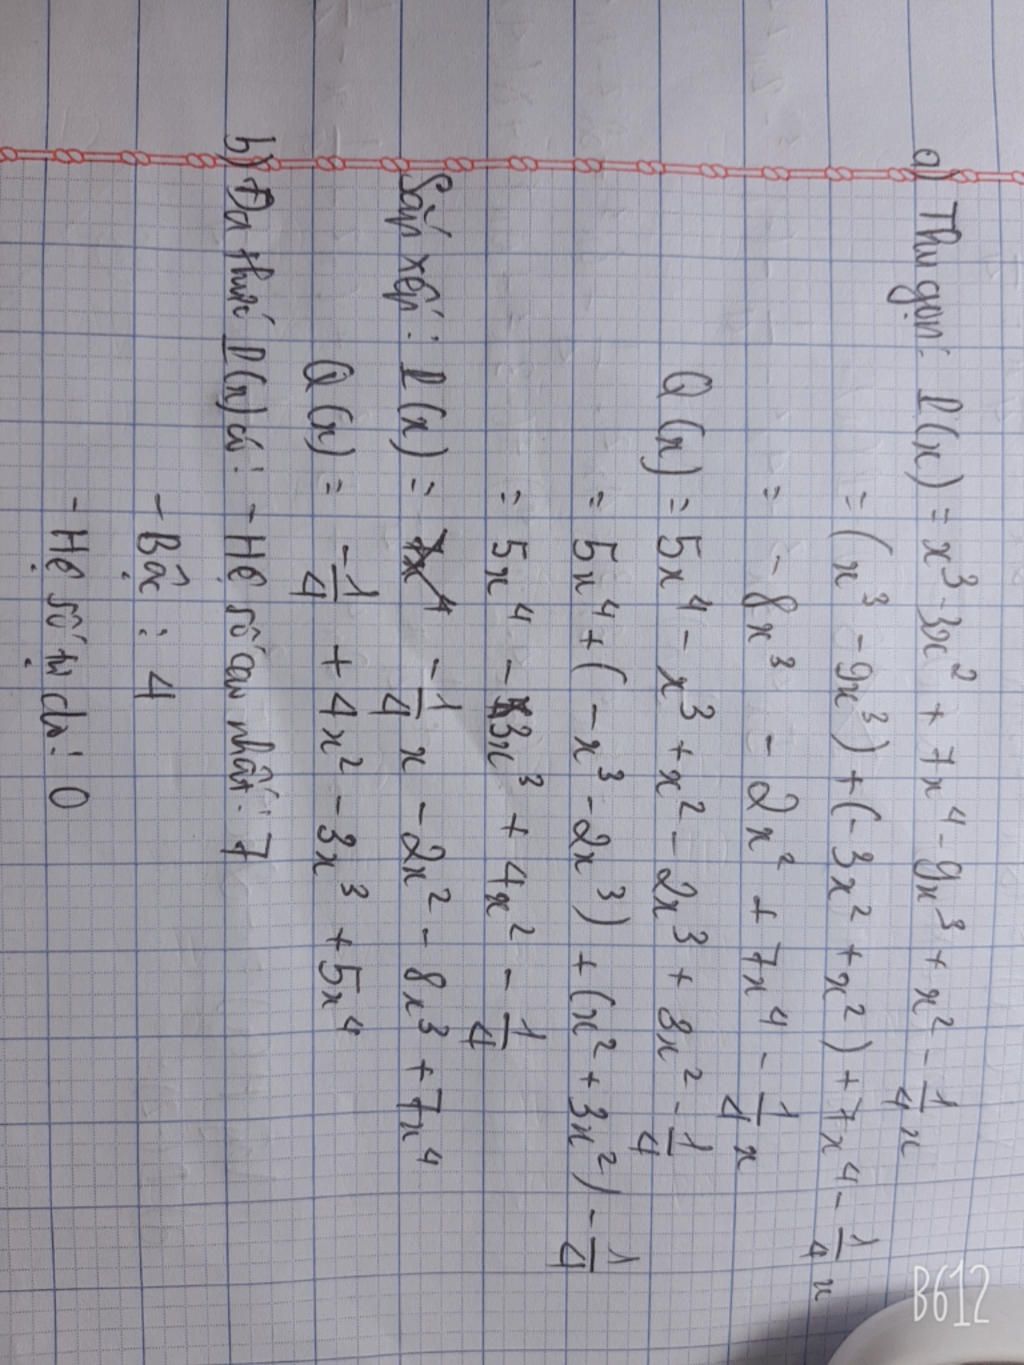 a) Thu gọn: P(x) = x³ - 3x² + 7x⁴ - 9x³ + x² - 1/4 x
= (x³ - 9x³) + (-3x² + x²) + 7x⁴ - 1/4 x
= - 8x³ - 2x² + 7x⁴ - 1/4 x
Q(x) = 5x⁴ - x³ + x² - 2x³ + 8x² - 1/4
= 5x⁴ + (-x³ - 2x³) + (x² + 3x²) - 1/4
= 5x⁴ - 3x³ + 4x² - 1/4
Sắp xếp: P(x) = - 1/4 x - 2x² - 8x³ + 7x⁴
Q(x) = -1/4 + 4x² - 3x³ + 5x⁴
b) Đa thức P(x) có: - Hệ số cao nhất: 7
- Bậc: 4
- Hệ số tự do: 0
B612